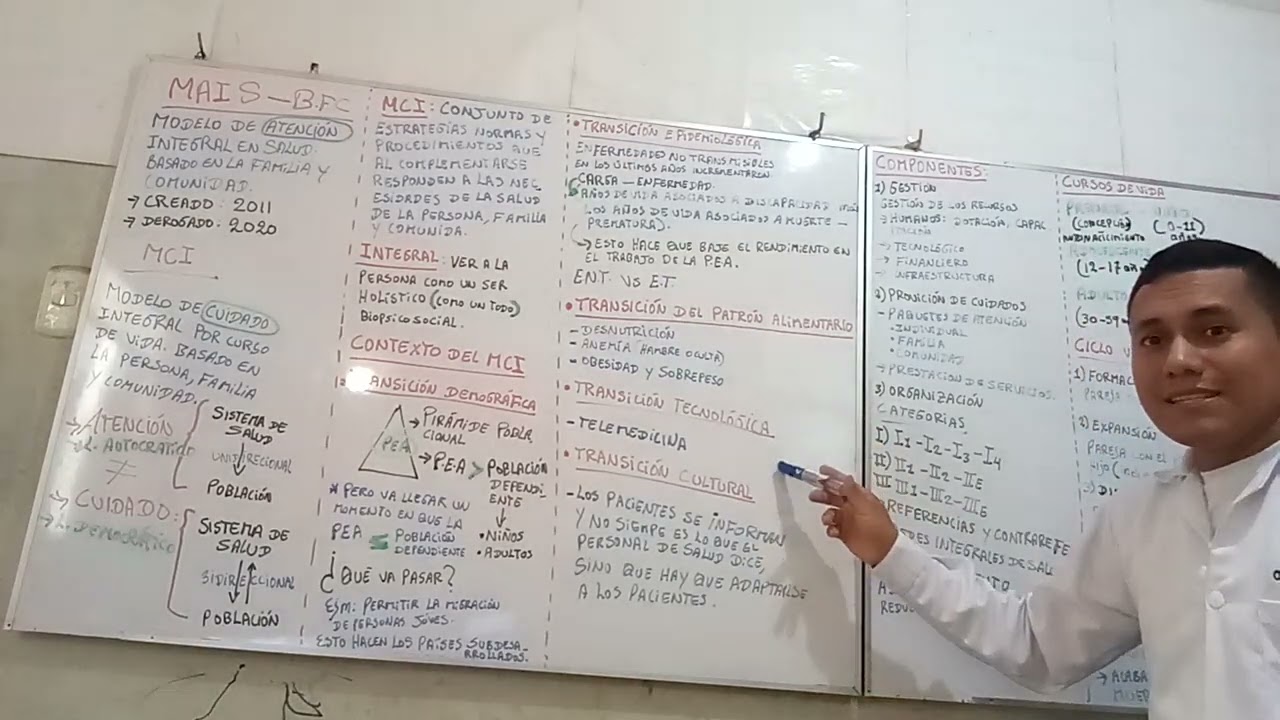 MAIS - BFC
MODELO DE ATENCIÓN
INTEGRAL EN SALUD.
BASADO EN LA FAMILIA Y
COMUNIDAD.
→ CREADO: 2011
→ DEROGADO: 2020
MCI
MODELO DE CUIDADO
INTEGRAL POR CURSO
DE VIDA. BASADO EN
LA PERSONA, FAMILIA
Y COMUNIDAD.
→ ATENCIÓN
AUTOCRATICO
≠
SISTEMA DE
SALUD
UNIDIRECIONAL
POBLACIÓN
→ CUIDADO:
DEMOCRÁTICO
SISTEMA DE
SALUD
BIDIRECCIONAL
POBLACIÓN
MCI: CONJUNTO DE
ESTRATEGIAS NORMAS Y
PROCEDIMIENTOS QUE
AL COMPLEMENTARSE
RESPONDEN A LAS NEC
ESIDADES DE LA SALUD
DE LA PERSONA, FAMILIA
Y COMUNIDA.
INTEGRAL: VER A LA
PERSONA COMO UN SER
HOLÍSTICO (COMO UN TODO)
BIOPSICOSOCIAL.
CONTEXTO DEL MCI
TRANSICIÓN DEMOGRÁFICA
PEA
→ PIRÁMIDE POBLA
CIONAL
→ P.E.A > POBLACIÓN
DEPENDI
ENTE
• NIÑOS
• ADULTOS
* PERO VA LLEGAR UN
MOMENTO EN QUE LA
PEA ≤ POBLACIÓN
DEPENDIENTE
¿QUÉ VA PASAR?
EJM: PERMITIR LA MIGRACIÓN
DE PERSONAS JÓVES.
ESTO HACEN LOS PAÍSES SUBDESA-
RROLLADOS.
• TRANSICIÓN EPIDEMIOLÓGICA
ENFERMEDADES NO TRANSMISIBLES
EN LOS ÚLTIMOS AÑOS INCREMENTARON.
CARGA - ENFERMEDAD.
AÑOS DE VIDA ASOCIADOS A DISCAPACIDAD
LOS AÑOS DE VIDA ASOCIADOS A MUERTE -
PREMATURA).
ESTO HACE QUE BAJE EL RENDIMIENTO EN
EL TRABAJO DE LA P.E.A.
E.N.T. VS E.T.
• TRANSICIÓN DEL PATRÓN ALIMENTARIO
- DESNUTRICIÓN
- ANEMÍA (HAMBRE OCULTA)
- OBESIDAD Y SOBREPESO
• TRANSICIÓN TECNOLÓGICA
- TELEMEDICINA
• TRANSICIÓN CULTURAL
- LOS PACIENTES SE INFORMEN
Y NO SIEMPE ES LO QUE EL
PERSONAL DE SALUD DICE,
SINO QUE HAY QUE ADAPTARLSE
A LOS PACIENTES.
COMPONENTES:
1) GESTIÓN
GESTIÓN DE LOS RECURSOS
→ HUMANOS: DOTACIÓN, CAPAC
ITACIÓN
→ TECNOLÓGICO
→ FINANCIERO
→ INFRAESTRUCTURA
2) PROVICIÓN DE CUIDADOS
- PAQUETES DE ATENCIÓN
• INDIVIDUAL
• FAMILIA
• COMUNIDAD
→ PRESTACIÓN DE SERVICIOS.
3) ORGANIZACIÓN
CATEGORIAS
I) I1 - I2 - I3 - I4
II) II1 - II2 - IIE
III III1 - III2 - IIIE
REFERENCIAS Y CONTRAREFE
INTEGRALES DE SAL
CURSOS DE VIDA
(CONCEPCIÓN
(0-11)
años
(12-17 años
ADULTO
(30-59
CICLO V
1) FORMAC
PAREJA
2) EXPANSIÓN
PAREJA CON EL
HIJO